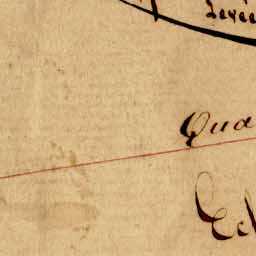 Levée
Qua
Ech